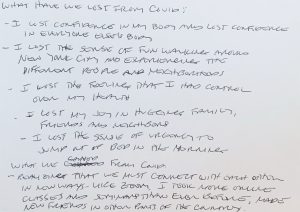 WHAT HAVE WE LOST FROM COVID?
- I LOST CONFIDENCE IN MY BODY AND LOST CONFIDENCE
IN EVERYONE ELSE'S BODY
- I LOST THE SENSE OF FUN WALKING AROUND
NEW YORK CITY AND EXPERIENCING THE
DIFFERENT PEOPLE AND NEIGHBORHOODS
- I LOST THE FEELING THAT I HAD CONTROL
OVER MY HEALTH
- I LOST MY JOY IN HUGGING FAMILY,
FRIENDS AND NEIGHBORS
- I LOST THE SENSE OF URGENCY TO
JUMP OUT OF BED IN THE MORNING
WHAT WE GAINED FROM COVID
- THAT WE MUST CONNECT WITH EACH OTHER
IN NEW WAYS. LIKE ZOOM. I TOOK MORE ONLINE
CLASSES AND THAN EVER BEFORE, MADE
NEW FRIENDS IN OTHER PARTS OF THE COUNTRY.